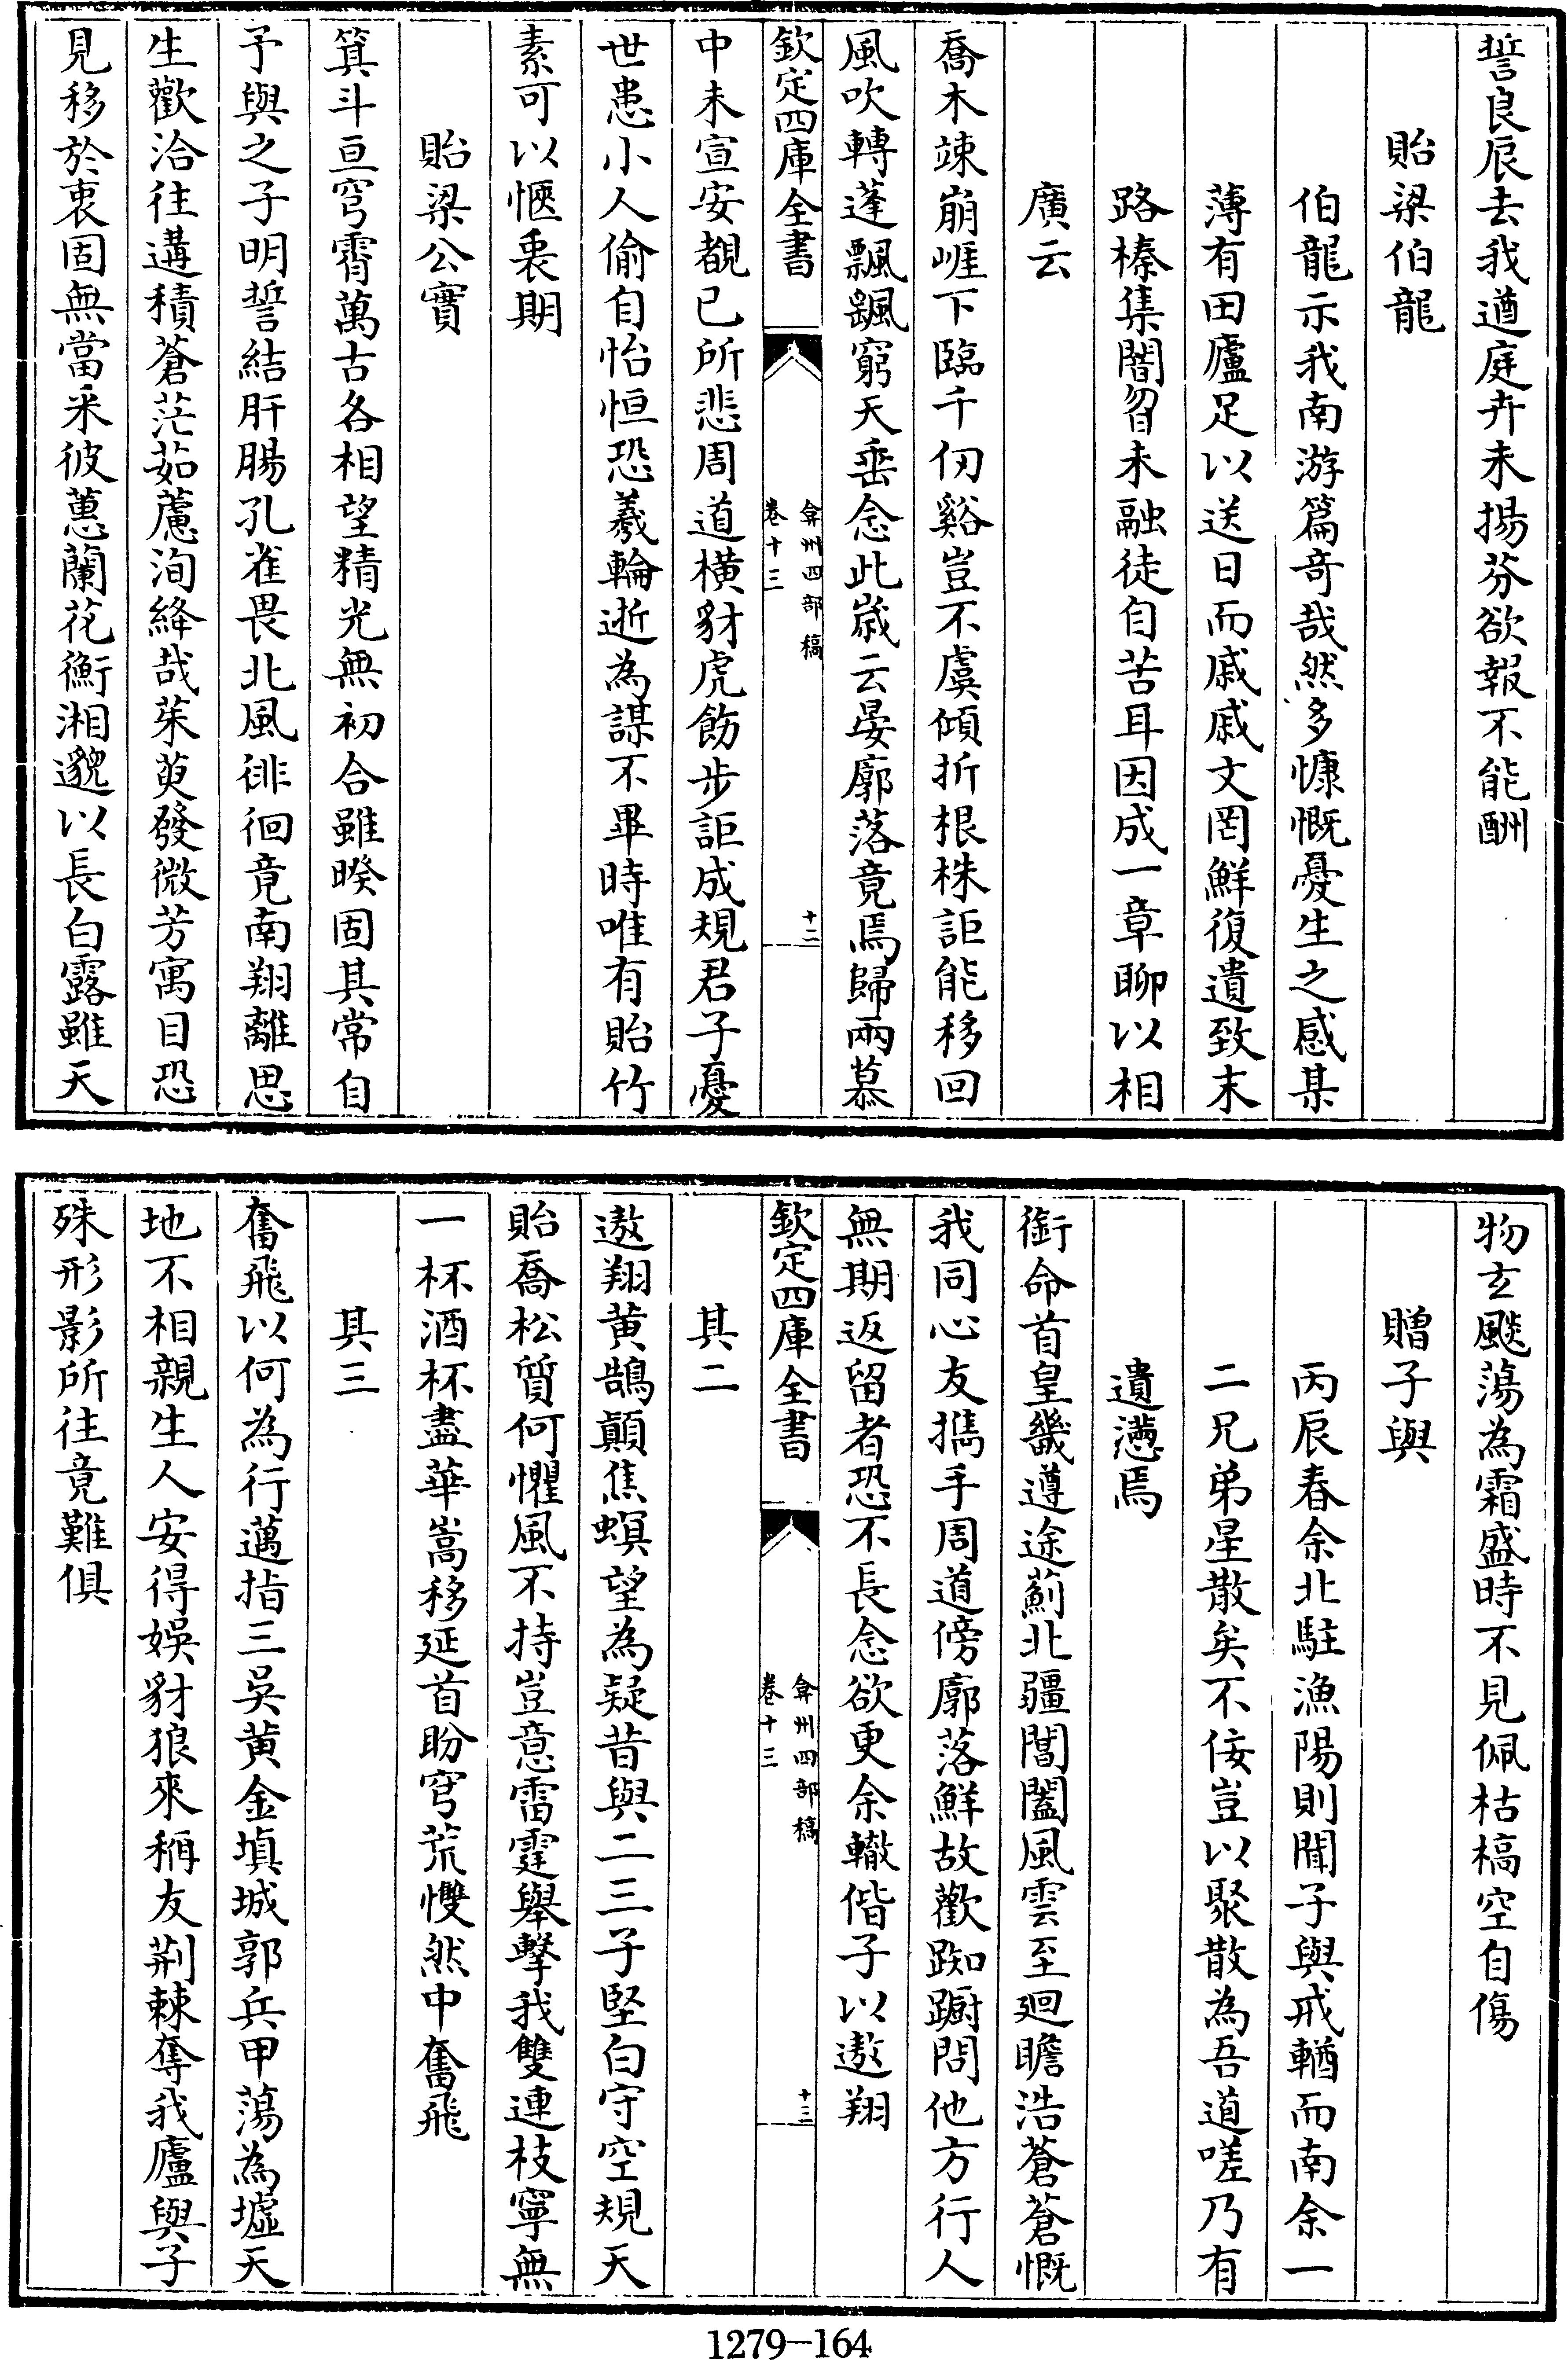 誓良辰去我遒庭卉未揚芬欲報不能酬
貽梁伯龍
伯龍示我南游篇竒哉然多慷慨憂生之感某
薄有田廬足以送日而戚戚文罔鮮復遺致末
路榛集闇曶未融徒自苦耳因成一章聊以相
廣云
喬木竦崩崕下臨千仞谿豈不虞傾折根株詎能移回
風吹轉蓬飄飖窮天垂念此嵗云晏廓落竟焉歸兩慕
欽定四庫全書
弇州四部稿
卷十三
十二
中未宣安覩已所悲周道橫豺虎飭步詎成規君子憂
世患小人偷自怡恒恐羲輪逝為謀不畢時唯有貽竹
素可以愜衷期
貽梁公實
箕斗亘穹霄萬古各相望精光無初合雖睽固其常自
予與之子明誓結肝腸孔雀畏北風徘徊竟南翔離思
生歡洽往遘積蒼茫茹藘洵絳哉茱萸發微芳寓目恐
見移於衷固無當采彼蕙蘭花衡湘邈以長白露雖天
物玄飈蕩為霜盛時不見佩枯槁空自傷
贈子與
丙辰春余北駐漁陽則聞子與戒輶而南余一
二兄弟星散矣不佞豈以聚散為吾道嗟乃有
遺懑焉
銜命首皇畿遵途薊北疆閶闔風雲至廻瞻浩蒼蒼慨
我同心友擕手周道傍廓落鮮故歡踟蹰問他方行人
無期返留者恐不長念欲更余轍偕子以遨翔
欽定四庫全書
弇州四部稿
卷十三
十三
其二
遨翔黄鵠顛焦螟望為疑昔與二三子堅白守空規天
貽喬松質何懼風不持豈意雷霆舉擊我雙連枝寧無
一杯酒杯盡華嵩移延首盼穹荒戄然中奮飛
其三
奮飛以何為行邁指三吳黄金填城郭兵甲蕩為墟天
地不相親生人安得娛豺狼來稱友荆棘奪我廬與子
殊形影所往竟難俱
1279-164